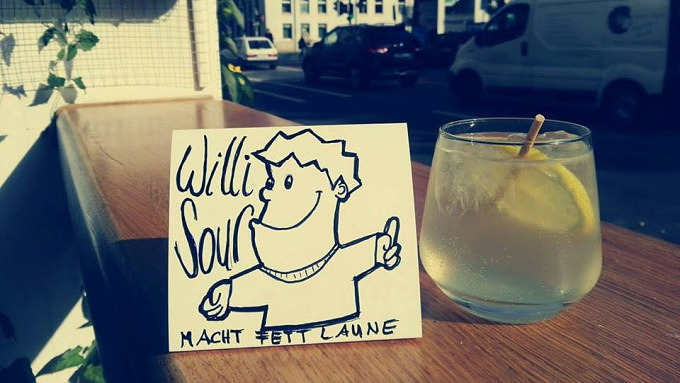 Willi
Sour
MACHT FETT LAUNE